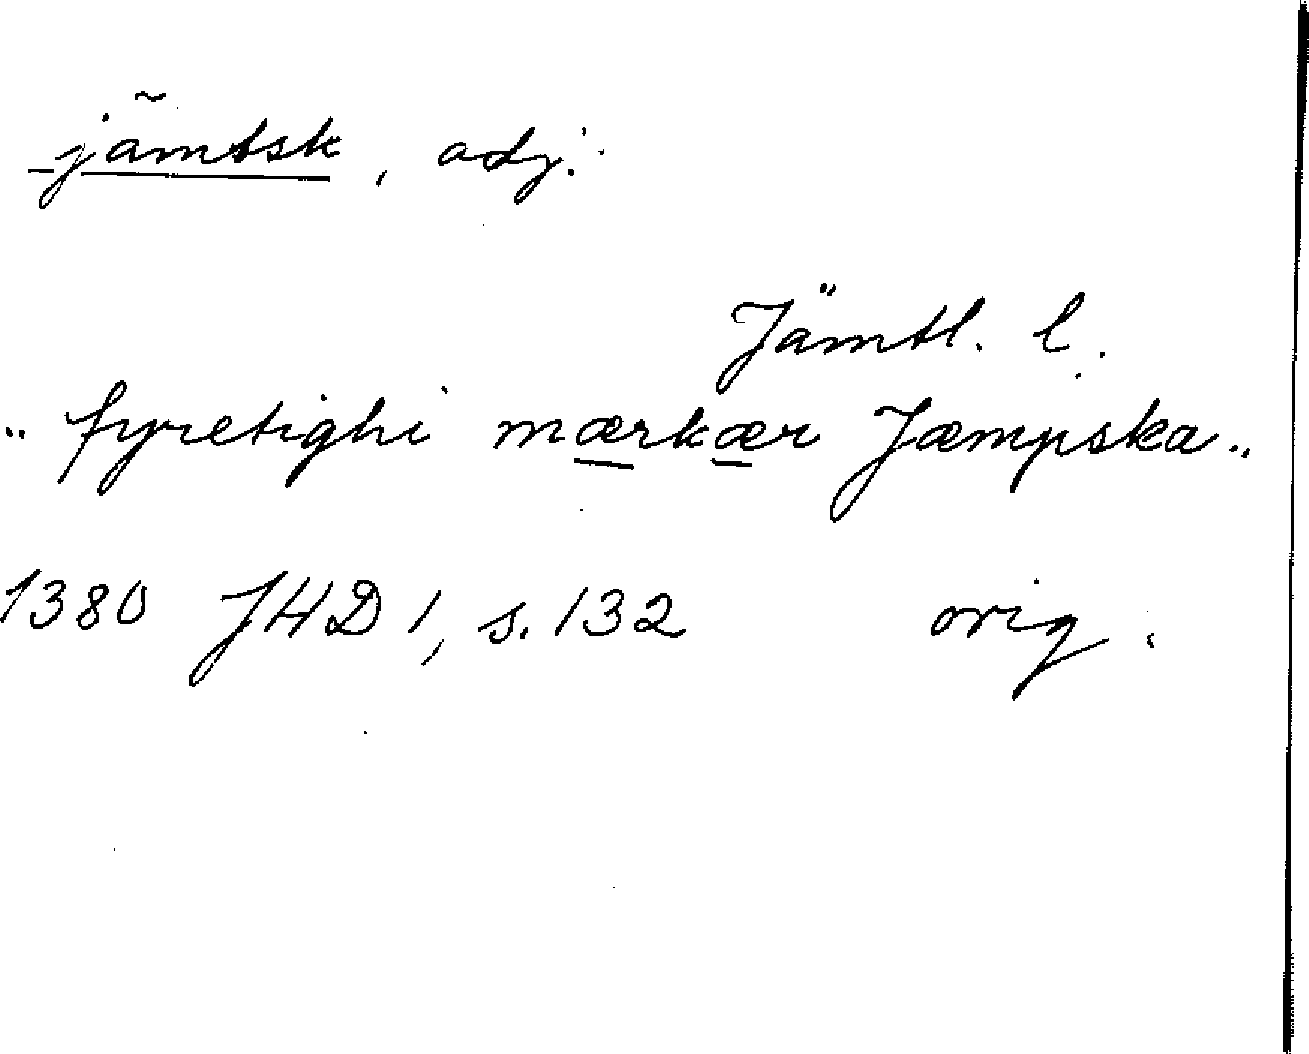 jämtsk, adj.
Jämtl. l.
.. fyretighi mærkær Jæmpska ..
1380 JHD 1, s. 132 orig.